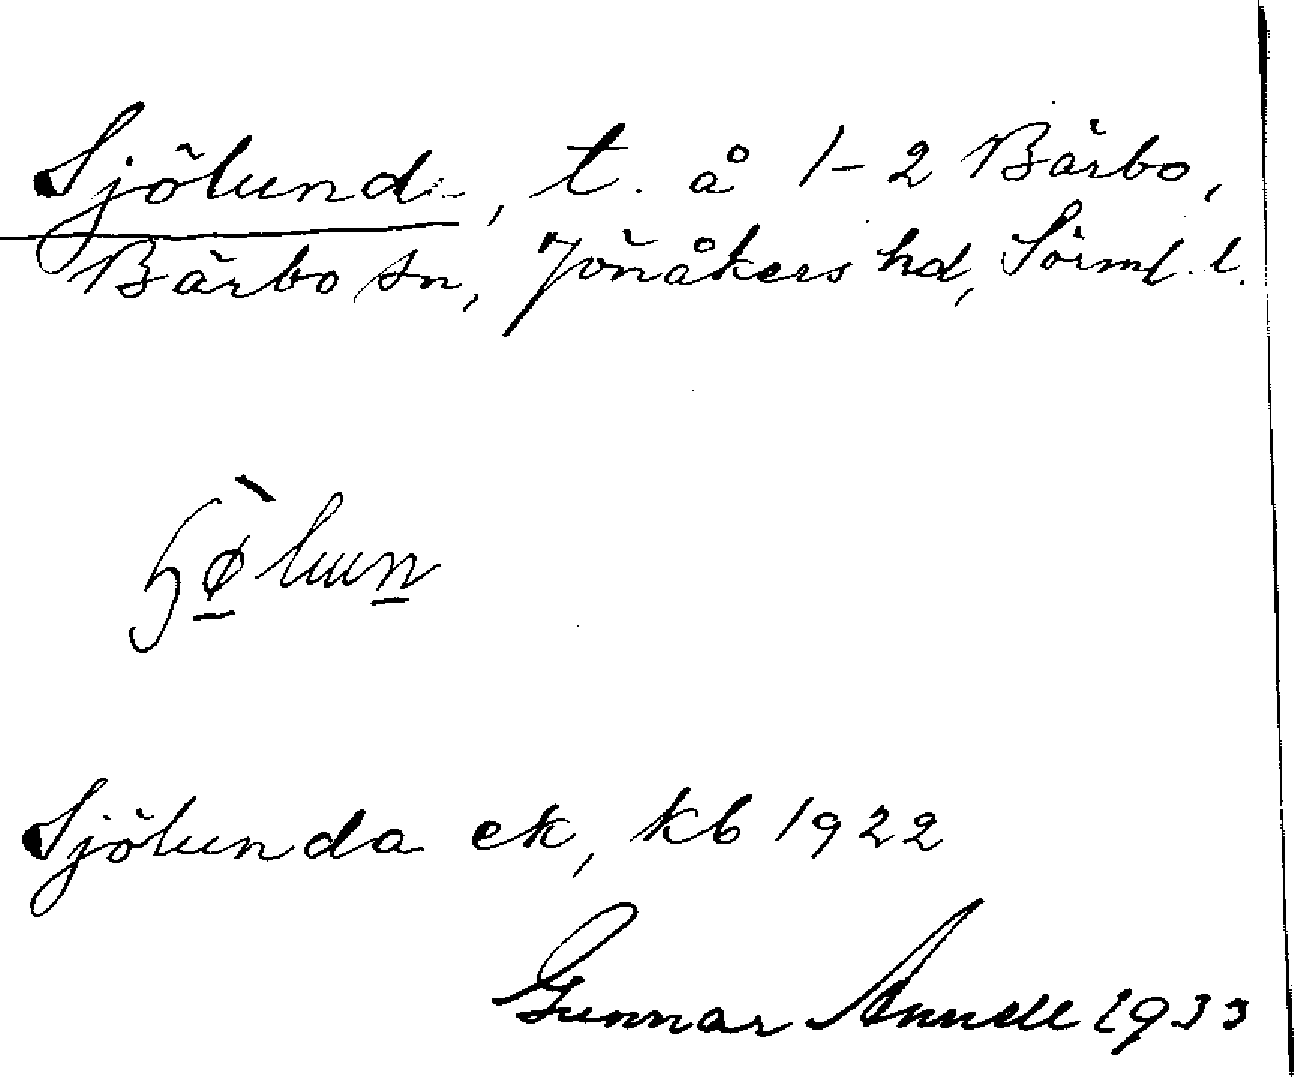 Sjölund, t. å 1-2 Bärbo,
Bärbo sn, Jönåkers hd, Sörml. l.
Sjölunda ek, kb 1922
Gunnar Annell 1933